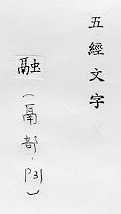 五經文字
融
（鬲部，P31）